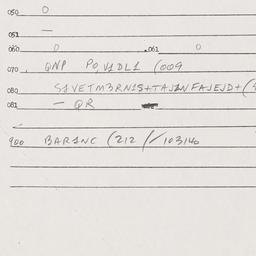 050 0
051 —
060 0 .061 0
070. QNP PO, V1DL1 (009
080 S1VETM3RN1S+TAJ1NFAJEJD+(
081 — QR
900 BAR1NC (212 //103140